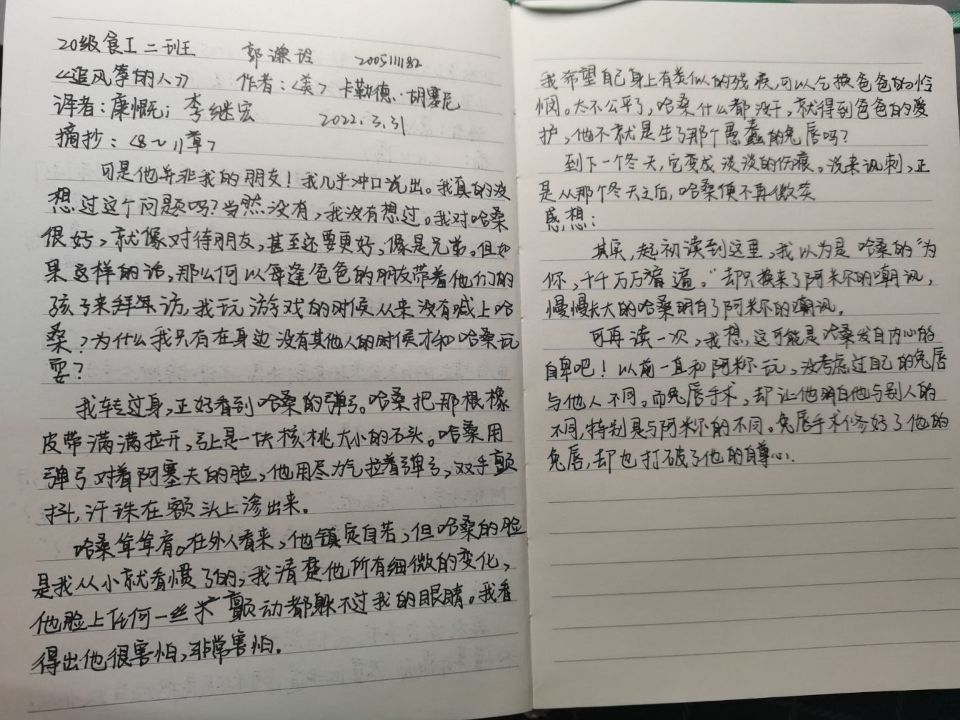 20级食工二班 郭濂玲 200511182
《追风筝的人》 作者:〈美〉卡勒德·胡塞尼
译者:康慨; 李继宏 2022.3.31
摘抄:〈8～11章〉
可是他并非我的朋友!我几乎冲口说出。我真的没
想过这个问题吗?当然没有,我没有想过。我对哈桑
很好,就像对待朋友,甚至还要更好,像是兄弟。但如
果这样的话,那么何以每逢爸爸的朋友带着他们的
孩子来拜访,我玩游戏的时候从来没有喊上哈
桑?为什么我只有在身边没有其他人的时候才和哈桑玩
耍?
我转过身,正好看到哈桑的弹弓。哈桑把那根橡
皮带满满拉开,弓上是一块核桃大小的石头。哈桑用
弹弓对着阿塞夫的脸,他用尽力气拉着弹弓,双手颤
抖,汗珠在额头上渗出来。
哈桑耸耸肩。在外人看来,他镇定自若,但哈桑的脸
是我从小就看惯了的,我清楚他所有细微的变化,
他脸上任何一丝颤动都躲不过我的眼睛。我看
得出他很害怕,非常害怕。
我希望自己身上有类似的残疾,可以乞换爸爸的怜
悯。太不公平了,哈桑什么都没干,就得到爸爸的爱
护,他不就是生了那个愚蠢的兔唇吗?
到下一个冬天,它变成淡淡的伤痕。说来讽刺,正
是从那个冬天之后,哈桑便不再微笑
感想:
其实,起初读到这里,我以为是哈桑的“为
你,千千万万遍。”却只换来了阿米尔的嘲讽,
慢慢长大的哈桑明白了阿米尔的嘲讽。
可再读一次,我想,这可能是哈桑发自内心的
自卑吧!以前一直和阿米尔玩,没考虑过自己的兔唇
与他人不同。而兔唇手术,却让他明白他与别人的
不同,特别是与阿米尔的不同。兔唇手术修好了他的
兔唇,却也打破了他的自尊心.